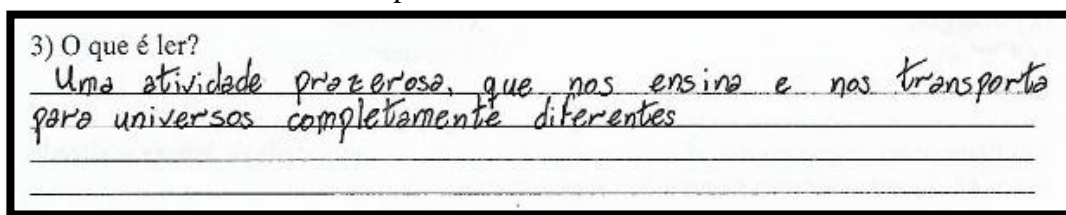 3) O que é ler?
Uma atividade prazerosa, que nos ensina e nos transporta
para universos completamente diferentes